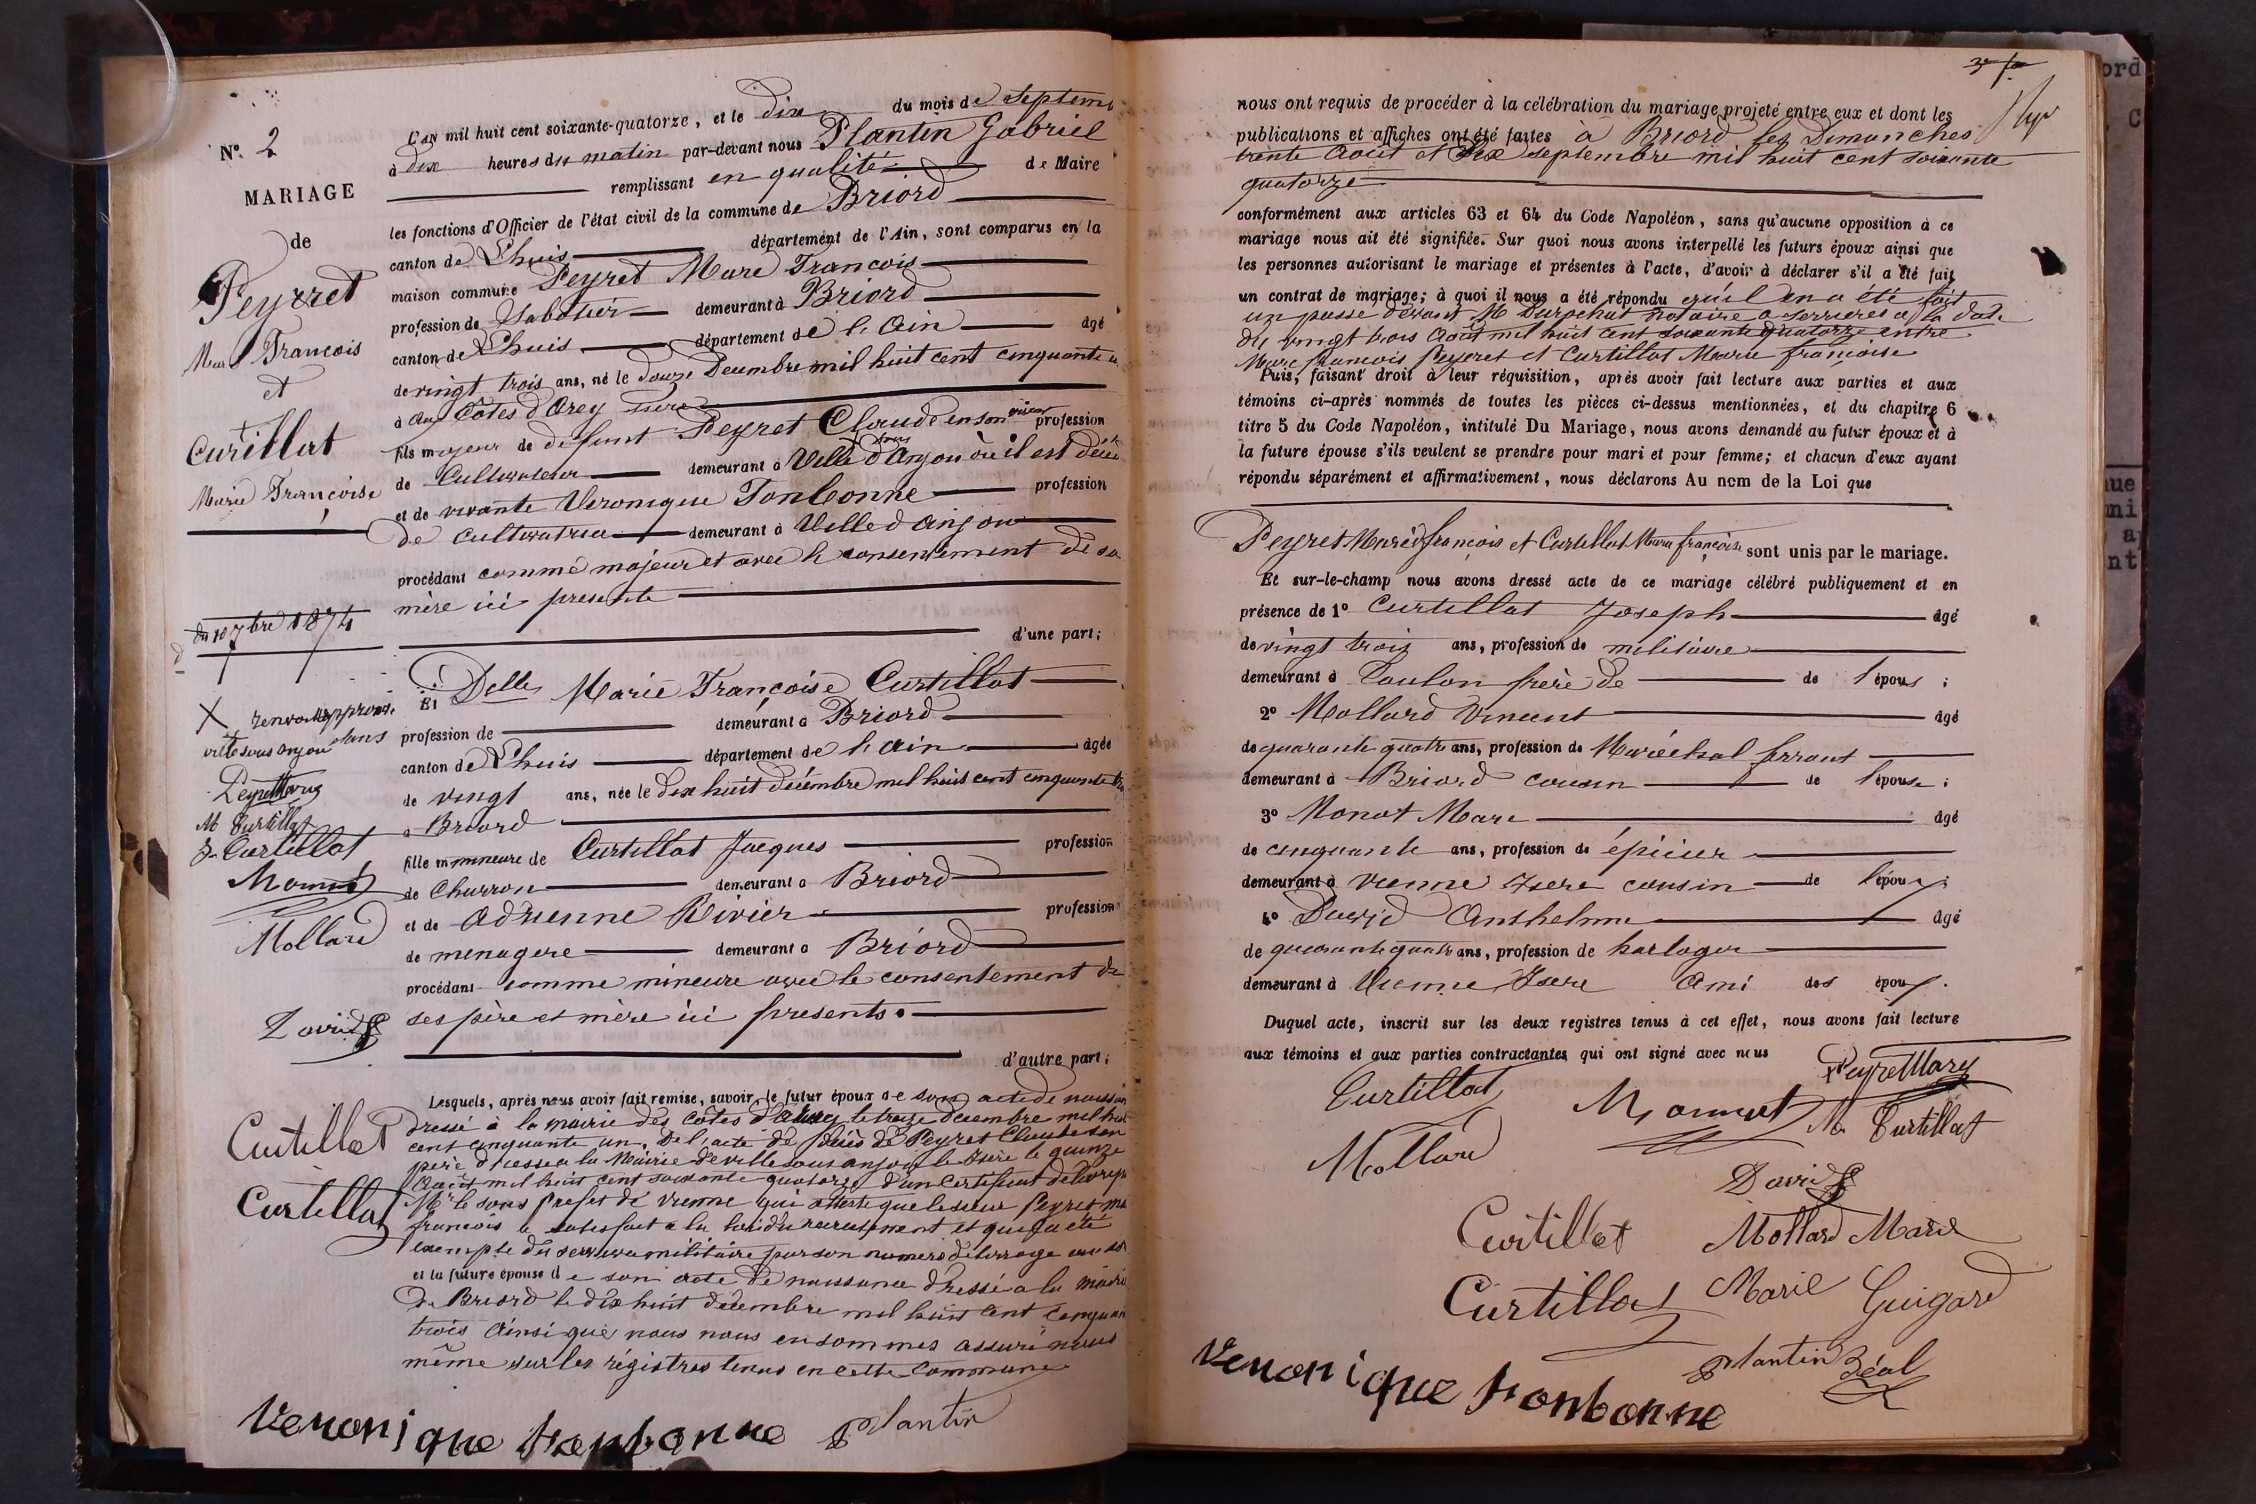 N° 2
MARIAGE
de
Peyret
Marc François
et
Curtillat
Marie Françoise
du 10 7bre 1874
X renvois approuvé
ville sous anjou dans
Peyret Marc
M Curtillat
J. Curtillat
Monnet
Mollard
David
Curtillat
Curtillat
L'AN mil huit cent soixante-quatorze, et le dix du mois de Septemb
à dix heures du matin par-devant nous Plantin Gabriel
remplissant en qualité de Maire
les fonctions d'Officier de l'état civil de la commune de Briord
canton de Lhuis département de l'Ain, sont comparus en la
maison commune Peyret Marc François
profession de Sabotier demeurant à Briord
canton de Lhuis département de l'Ain âgé
de vingt trois ans, né le douze Decembre mil huit cent cinquante u
à aux Côtes d'Arey Isère
fils majeur de defunt Peyret Claude en son vivant profession
de Cultivateur demeurant à Ville sous d'Anjou où il est décé
et de vivante Veronique Tonbonne profession
de cultivatrice demeurant à Ville d'anjou
procédant comme majeur et avec le consentement de sa
mère ici presente
d'une part;
Et Delle Marie Françoise Curtillat
profession de demeurant à Briord
canton de Lhuis département de l'ain âgée
de vingt ans, née le dix huit décembre mil huit cent cinquante tro
à Briord
fille mineure de Curtillat Jacques profession
de Charron demeurant à Briord
et de Adrienne Rivier profession
de menagere demeurant à Briord
procédant comme mineure avec le consentement de
ses père et mère ici presents.
d'autre part;
Lesquels, après nous avoir fait remise, savoir, le futur époux de son acte de naissan
dressé à la mairie des côtes d'arey le treize decembre mil huit
cent cinquante un, De l'acte de décès de Peyret Claude son
père dressé a la Mairie de ville sous anjou le Isère le quinze
Août mil huit cent soixante quatorze d'un certificat délivré p
Mr le sous prefet de Vienne qui atteste que le sieur Peyret ma
françois a satisfait a la loi du recrutement et qu'il a été
exempté du service militaire par son numero de tirrage
et la future épouse de son acte de naissance dressé a la mairie
de Briord le dix huit decembre mil huit cent cinquan
trois ainsi que nous nous en sommes assuré nous
même sur les régistres tenus en cette commune
Veronique tronbonne Plantin
nous ont requis de procéder à la célébration du mariage projeté entre eux et dont les
publications et affiches ont été faites à Briord les Dimanches
trente Août et six septembre mil huit cent soixante
quatorze
conformément aux articles 63 et 64 du Code Napoléon, sans qu'aucune opposition à ce
mariage nous ait été signifiée. Sur quoi nous avons interpellé les futurs époux ainsi que
les personnes autorisant le mariage et présentes à l'acte, d'avoir à déclarer s'il a été fait
un contrat de mariage; à quoi il nous a été répondu qu'il en a été fait
un passé devant M Durochat notaire a serrieres a la date
du vingt trois Août mil huit cent soixante quatorze entre
Marc françois Peyeret et Curtillat Marie françoise
Puis, faisant droit à leur réquisition, après avoir fait lecture aux parties et aux
témoins ci-après nommés de toutes les pièces ci-dessus mentionnées, et du chapitre 6
titre 5 du Code Napoléon, intitulé Du Mariage, nous avons demandé au futur époux et à
la future épouse s'ils veulent se prendre pour mari et pour femme; et chacun d'eux ayant
répondu séparément et affirmativement, nous déclarons Au nom de la Loi que
Peyret Marc françois et Curtillat Marie françoise sont unis par le mariage.
Et sur-le-champ nous avons dressé acte de ce mariage célébré publiquement et en
présence de 1° Curtillat Joseph âgé
de vingt trois ans, profession de militaire
demeurant à Toulon frère de de l'épous ;
2° Mollard Vincent âgé
de quarante quatre ans, profession de Maréchal ferrant
demeurant à Briord cousin de l'épouse ;
3° Monot Marc âgé
de cinquante ans, profession de épicier
demeurant à Vienne Isere cousin de l'époux ;
4° David Anthelme âgé
de quarante quatre ans, profession de horloger
demeurant à Vienne Isere Ami des époux.
Duquel acte, inscrit sur les deux registres tenus à cet effet, nous avons fait lecture
aux témoins et aux parties contractantes qui ont signé avec nous
Peyret Marc
Curtillat Monnet M. Curtillat
Mollard
David
Curtillat Mollard Marie
Curtillat Marie Guigard
Plantin
Veronique tronbonne